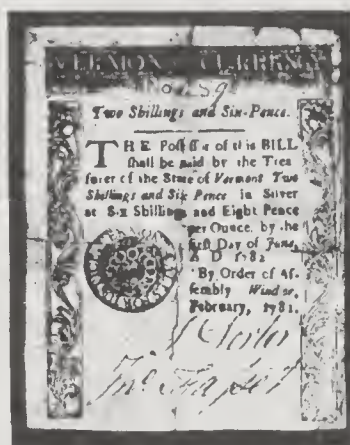 CURRENCY
Two Shillings and Six-Pence.
THE Possessor of this BILL
shall be paid by the Trea
surer of the State of Vermont Two
Shillings and Six Pence in Silver
at Six Shillings and Eight Pence
per Ounce, by the
first Day of June,
A D 1782
By Order of As-
sembly Windsor,
February, 1781.